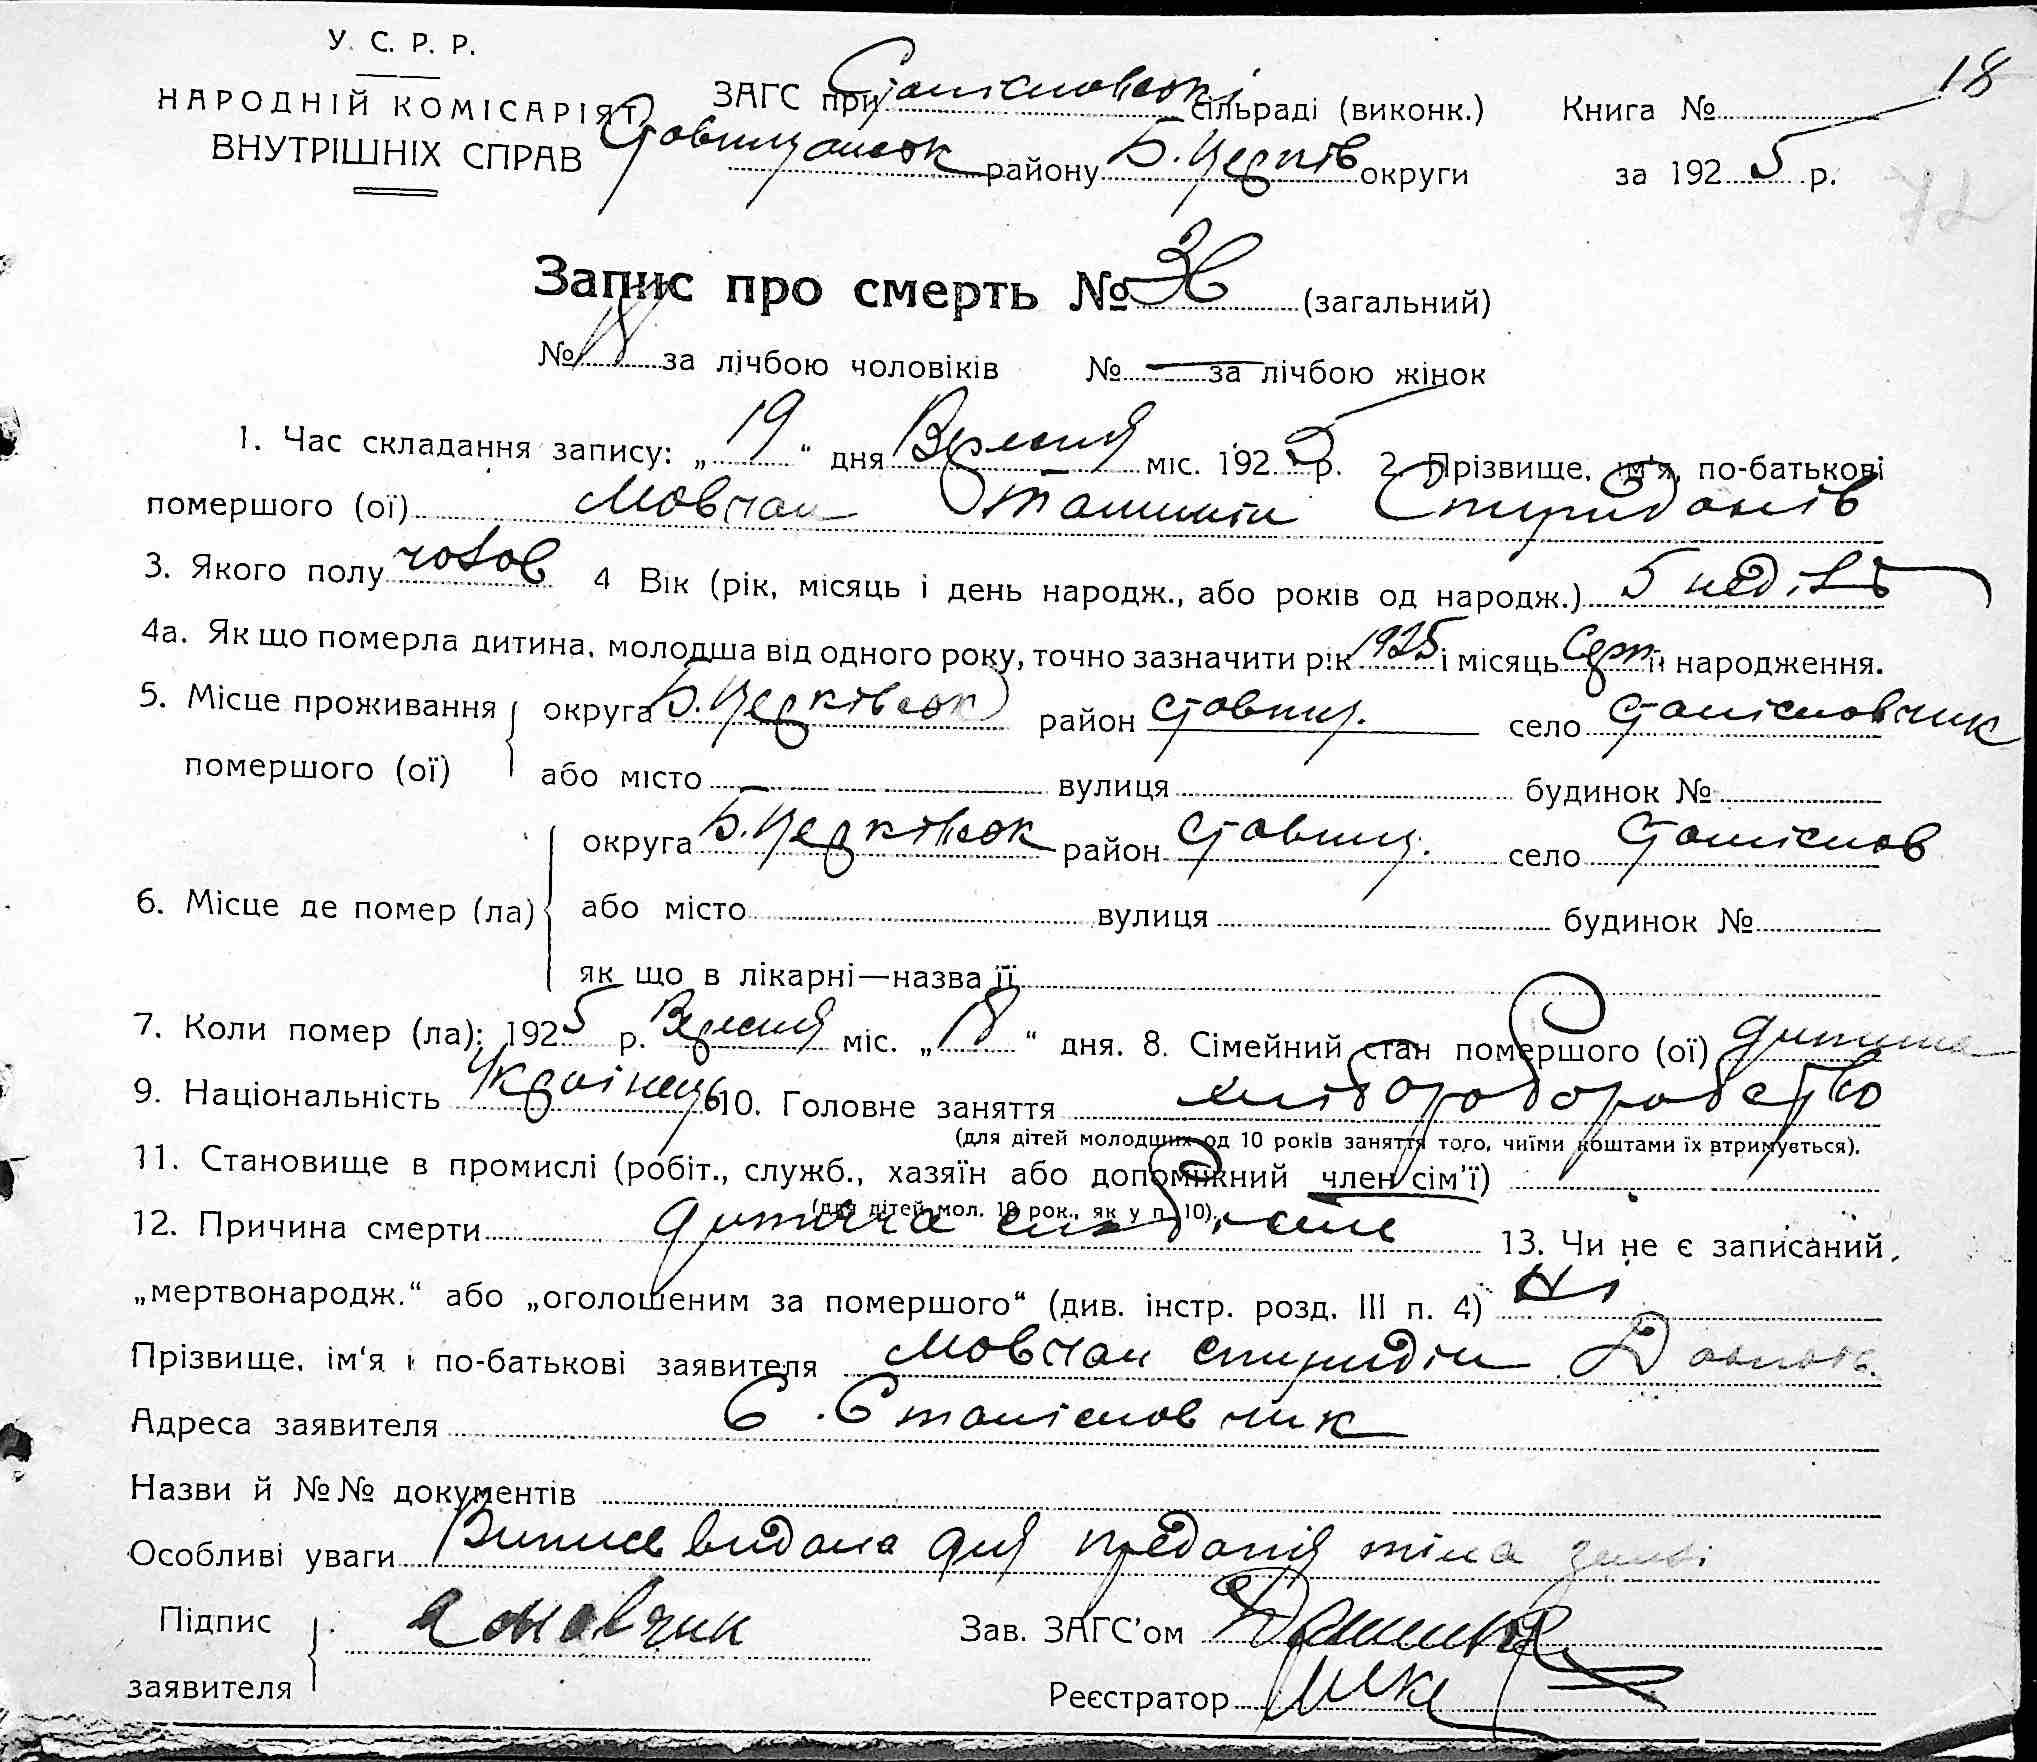 У. С. Р. Р.
НАРОДНІЙ КОМІСАРІЯТ
ВНУТРІШНІХ СПРАВ
ЗАГС при Станіславській сільраді (виконк.) Книга № 18
Ставищанськ району Б. Церків округи за 1925 р.
72
Запис про смерть № (загальний)
№ за лічбою чоловіків № — за лічбою жінок
1. Час складання запису: „19“ дня Вересня міс. 1925 р. 2. Прізвище, ім'я, по-батькові
помершого (ої) Мовчан Спиридонів
3. Якого полу чолов 4 Вік (рік, місяць і день народж., або років од народж.) 5 неділь
4а. Як що померла дитина, молодша від одного року, точно зазначити рік 1925 і місяць Серп її народження.
5. Місце проживання округа Б. Церківськ район Ставищ. село Станіславчик
помершого (ої) або місто вулиця будинок №
округа Б. Церківськ район Ставищ. село Станіслав
6. Місце де помер (ла) або місто вулиця будинок №
як що в лікарні—назва її
7. Коли помер (ла): 1925 р. Вересня міс. „18“ дня. 8. Сімейний стан помершого (ої) дитина
9. Національність Українець 10. Головне заняття хліборобство
(для дітей молодших од 10 років заняття того, чиїми коштами їх втримується).
11. Становище в промислі (робіт., служб., хазяїн або допоміжний член сім'ї)
(для дітей мол. 10 рок., як у п. 10).
12. Причина смерти дитяча слабість 13. Чи не є записаний,
„мертвонародж.“ або „оголошеним за помершого“ (див. інстр. розд. III п. 4) Ні
Прізвище, ім'я і по-батькові заявителя Мовчан Спиридін
Адреса заявителя С. Станіславчик
Назви й №№ документів
Особливі уваги Випись видана для предання тіла землі
Підпис
заявителя
Зав. ЗАГС'ом
Реєстратор